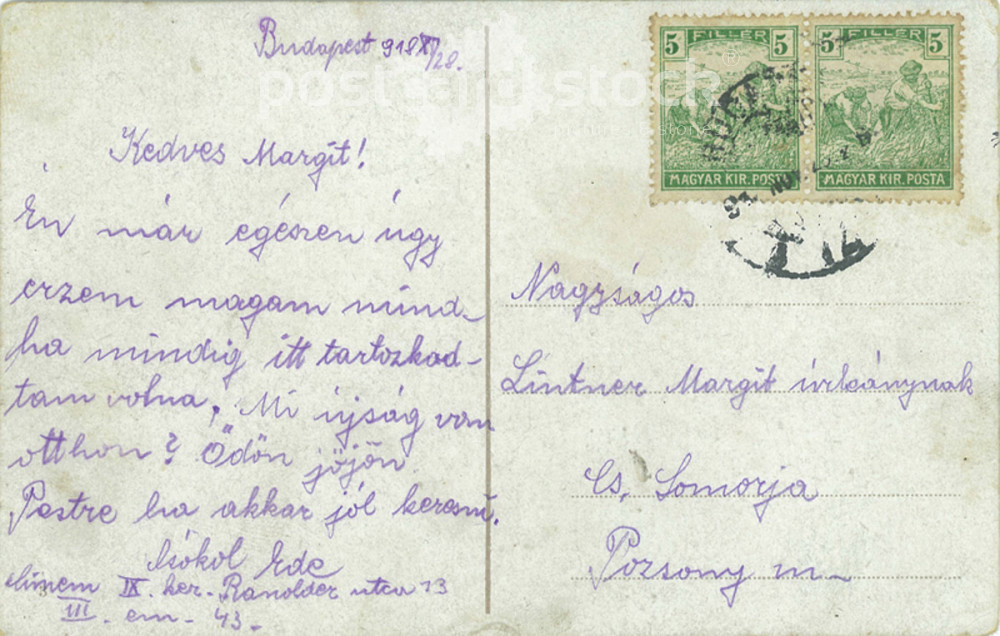 Budapest 918 XI/28.
Kedves Margit!
Én már egészen úgy
érzem magam mind-
ha mindig itt tartozkod-
tam volna, Mi újság van
otthon? Ödön jöjön
Pestre ha akkar jól keresni.
Csókol Ede
címem IX. ker. Ranolder utca 13
III. em. 43.
5 FILLÉR 5
MAGYAR KIR. POSTA
5 FILLÉR 5
MAGYAR KIR. POSTA
Nagyságos
Lintner Margit úrleánynak
Cs. Somorja
Pozsony m.
postcard stock